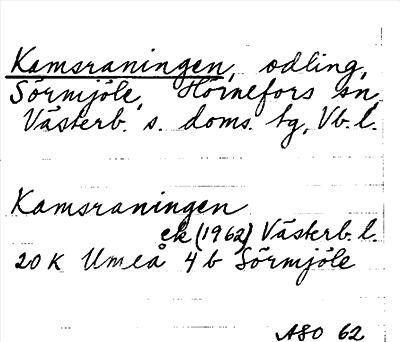 Kamsraningen, odling,
Sörmjöle, Hörnefors sn
Västerb. s. doms. tg, Vb. l.
Kamsraningen
ek (1962) Västerb. l.
20 K Umeå 4 b Sörmjöle
ASO 62